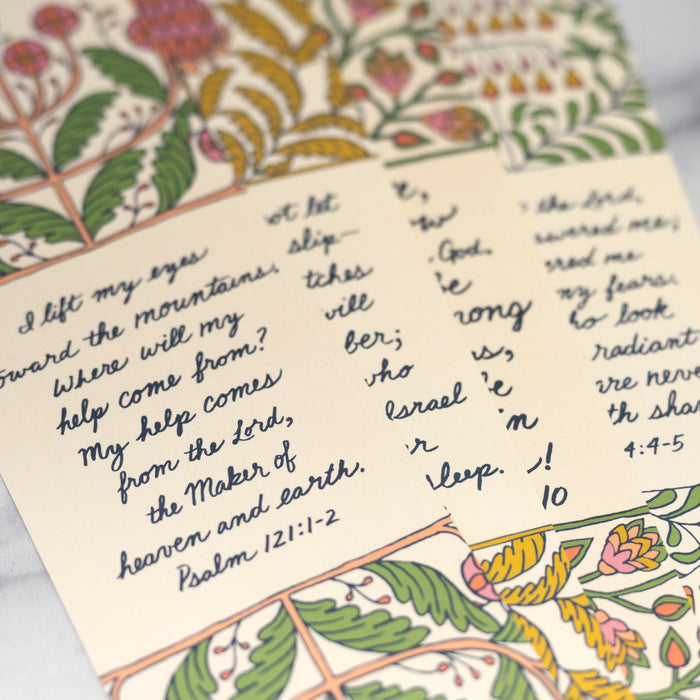 I lift my eyes
toward the mountains.
Where will my
help come from?
My help comes
from the Lord,
the Maker of
heaven and earth.
Psalm 121:1-2
ot let
slip—
tches
will
ber;
who
Israel
r
sleep.
God.
ong
s,
!
10
the Lord,
swered me;
me
my fears.
who look
radiant
are never
th
4:4-5